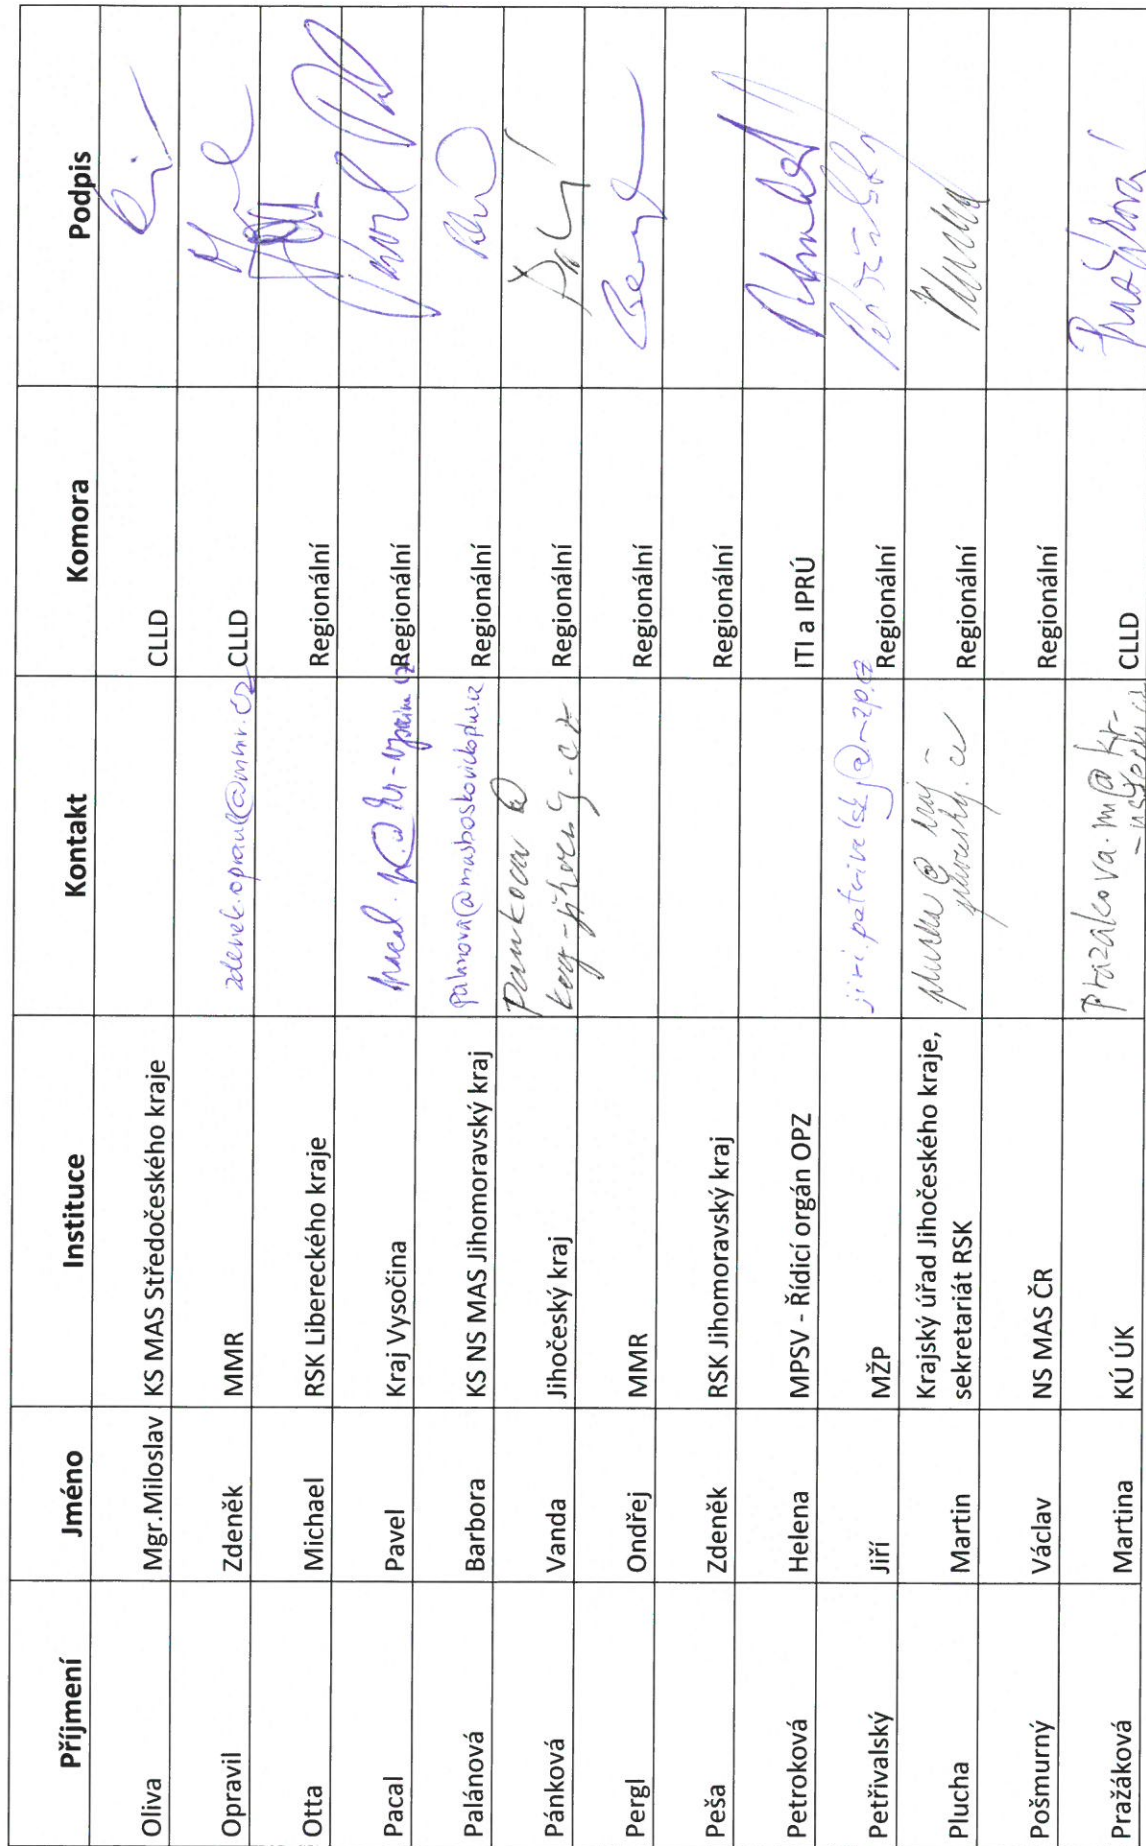 Příjmení Jméno Instituce Kontakt Komora Podpis
Oliva Mgr.Miloslav KS MAS Středočeského kraje CLLD
Opravil Zdeněk MMR zdenek.opravil@mmr.cz CLLD
Otta Michael RSK Libereckého kraje Regionální
Pacal Pavel Kraj Vysočina Regionální
Palánová Barbora KS NS MAS Jihomoravský kraj palanova@masboskovickoplus.cz Regionální
Pánková Vanda Jihočeský kraj Regionální
Pergl Ondřej MMR Regionální
Peša Zdeněk RSK Jihomoravský kraj Regionální
Petroková Helena MPSV - Řídicí orgán OPZ ITI a IPRÚ
Petřivalský Jiří MŽP Regionální
Plucha Martin Krajský úřad Jihočeského kraje, Regionální
sekretariát RSK
Pošmurný Václav NS MAS ČR Regionální
Pražáková Martina KÚ ÚK prazakova.m@kr- CLLD Pražáková